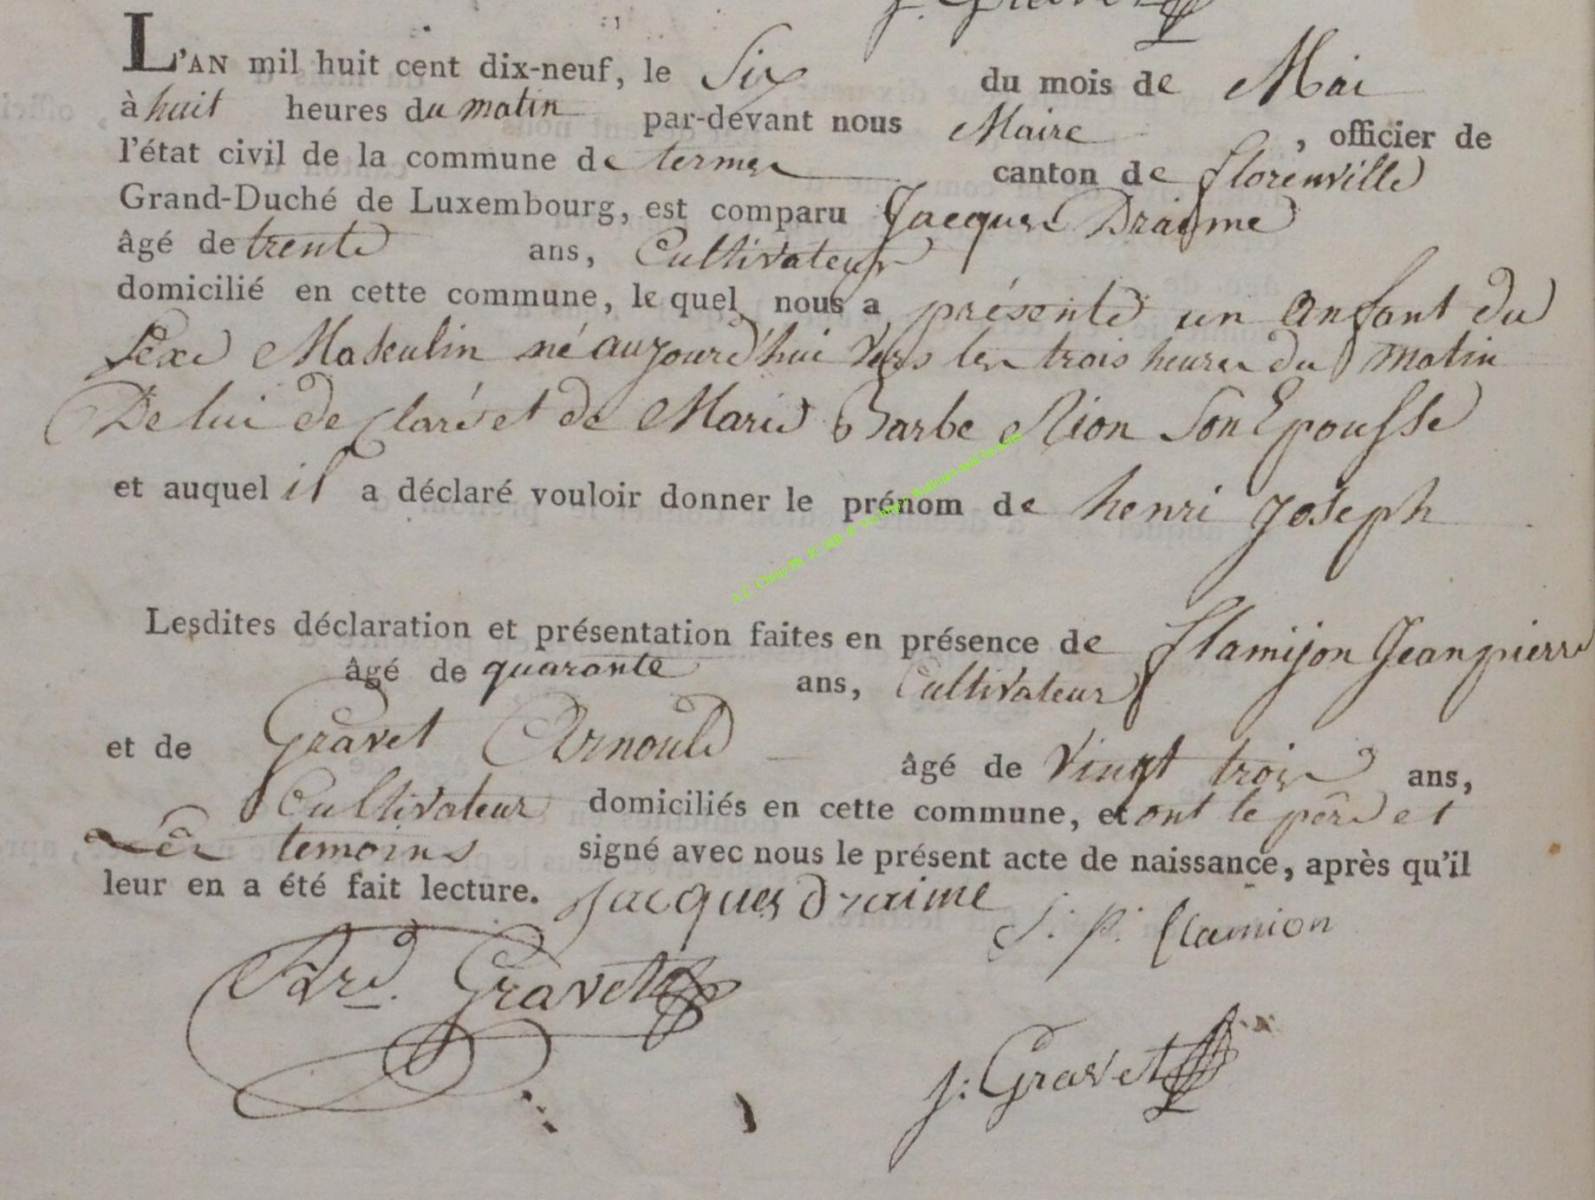 L'AN mil huit cent dix-neuf, le Six du mois de Mai
à huit heures du matin par-devant nous Maire , officier de
l'état civil de la commune de termes canton de florenville
Grand-Duché de Luxembourg, est comparu Jacques Draime
âgé de trente ans, Cultivateur
domicilié en cette commune, lequel nous a présenté un Enfant du
Sexe Masculin né aujourd'hui Vers les trois heures du matin
De lui declaré et de Marie Barbe Rion Son Epousse
et auquel il a déclaré vouloir donner le prénom de henri joseph
Lesdites déclaration et présentation faites en présence de flamijon Jeanpierre
âgé de quarante ans, Cultivateur
et de Gravet Arnould âgé de Vingt trois ans,
Cultivateur domiciliés en cette commune, et ont le père et
les temoins signé avec nous le présent acte de naissance, après qu'il
leur en a été fait lecture. jacques draime
J. p. flamion
Ard. Gravet
j: Gravet